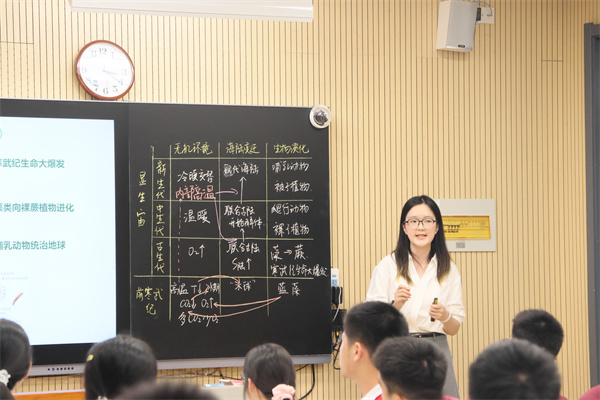 武纪生命大爆发
类向裸蕨植物进化
乳动物统治地球
无机环境 海陆变迁 生物演化
显生宙
新生代 冷暖交替 现代海陆 哺乳动物
内部高温 被子植物
中生代 温暖 联合古陆 爬行动物
开始解体 裸子植物
古生代 O₂↑ 联合古陆 藻→蕨
寒武纪生命大爆发
前寒武纪 高温 "荒凉" 蓝藻
CO₂↓ O₂↑